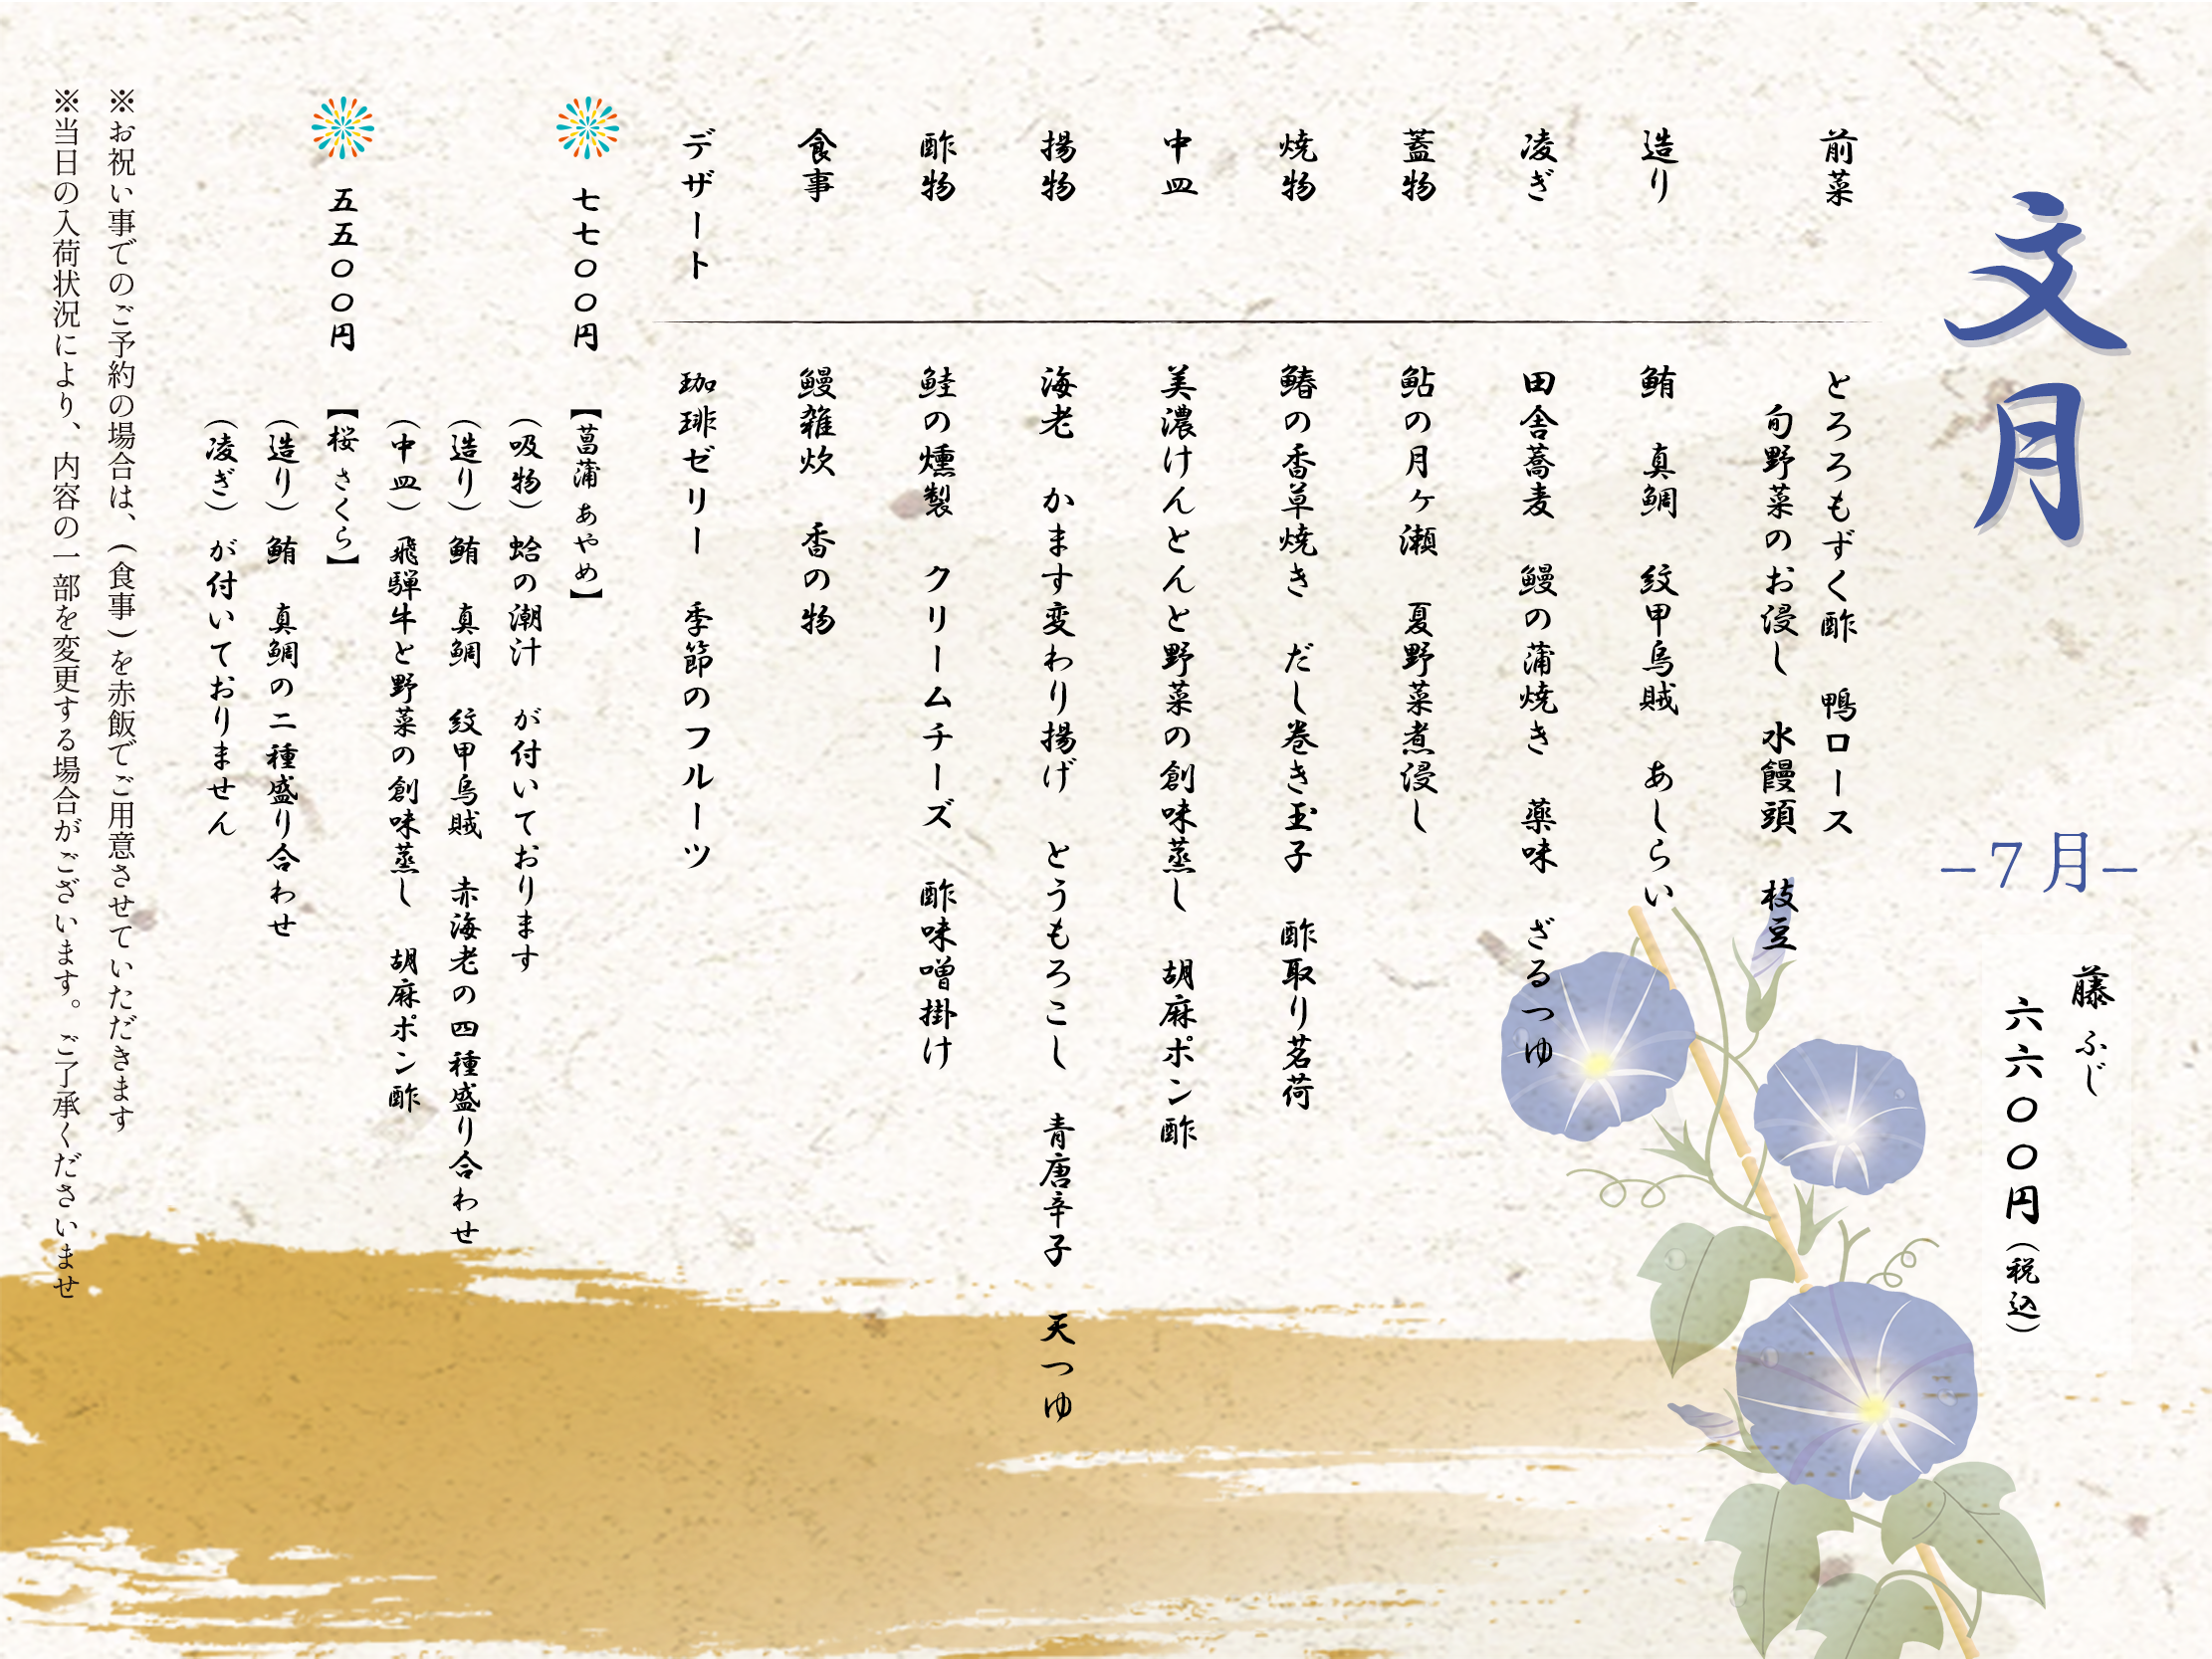 文月
–7月–
藤 ふじ
六六〇〇円(税込)
前菜 とろろもずく酢 鴨ロース
旬野菜のお浸し 水饅頭 枝豆
造り 鮪 真鯛 紋甲烏賊 あしらい
凌ぎ 田舎蕎麦 鰻の蒲焼き 薬味 ざるつゆ
蓋物 鮎の月ヶ瀬 夏野菜煮浸し
焼物 鰆の香草焼き だし巻き玉子 酢取り茗荷
中皿 美濃けんとんと野菜の創味蒸し 胡麻ポン酢
揚物 海老 かます変わり揚げ とうもろこし 青唐辛子 天つゆ
酢物 鮭の燻製 クリームチーズ 酢味噌掛け
食事 鰻雑炊 香の物
デザート 珈琲ゼリー 季節のフルーツ
七七〇〇円 【菖蒲 あやめ】
(吸物) 蛤の潮汁 が付いております
(造り) 鮪 真鯛 紋甲烏賊 赤海老の四種盛り合わせ
(中皿) 飛騨牛と野菜の創味蒸し 胡麻ポン酢
五五〇〇円 【桜 さくら】
(造り) 鮪 真鯛の二種盛り合わせ
(凌ぎ) が付いておりません
※お祝い事でのご予約の場合は、(食事)を赤飯でご用意させていただきます
※当日の入荷状況により、内容の一部を変更する場合がございます。ご了承くださいませ